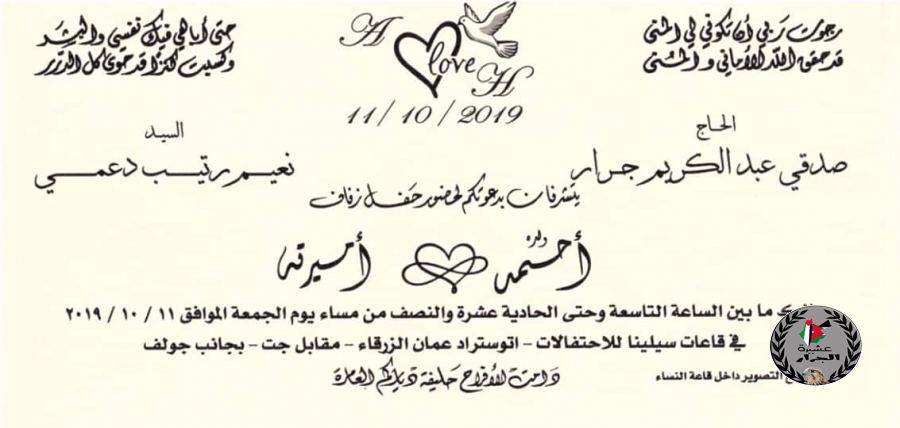 رجوت ربي أن تكوني لي المنى
قد حقق الله الأماني والمشتهى
حتى أباهي فيك نفسي والبشر
وكسبت كنزا قد حوى كل الدرر
A love H
11/10/2019
الحاج
صدقي عبد الكريم جرار
السيد
نعيم رتيب دعمس
يتشرفان بدعوتكم لحضور حفل زفاف
ولده
أحمد
أميرته
ما بين الساعة التاسعة وحتى الحادية عشرة والنصف من مساء يوم الجمعة الموافق ١١ / ١٠ / ٢٠١٩
في قاعات سيلينا للاحتفالات - اتوستراد عمان الزرقاء - مقابل جت - بجانب جولف
التصوير داخل قاعة النساء
دامت الأفراح حليفة دياركم العامرة
عشيرة
الجرار